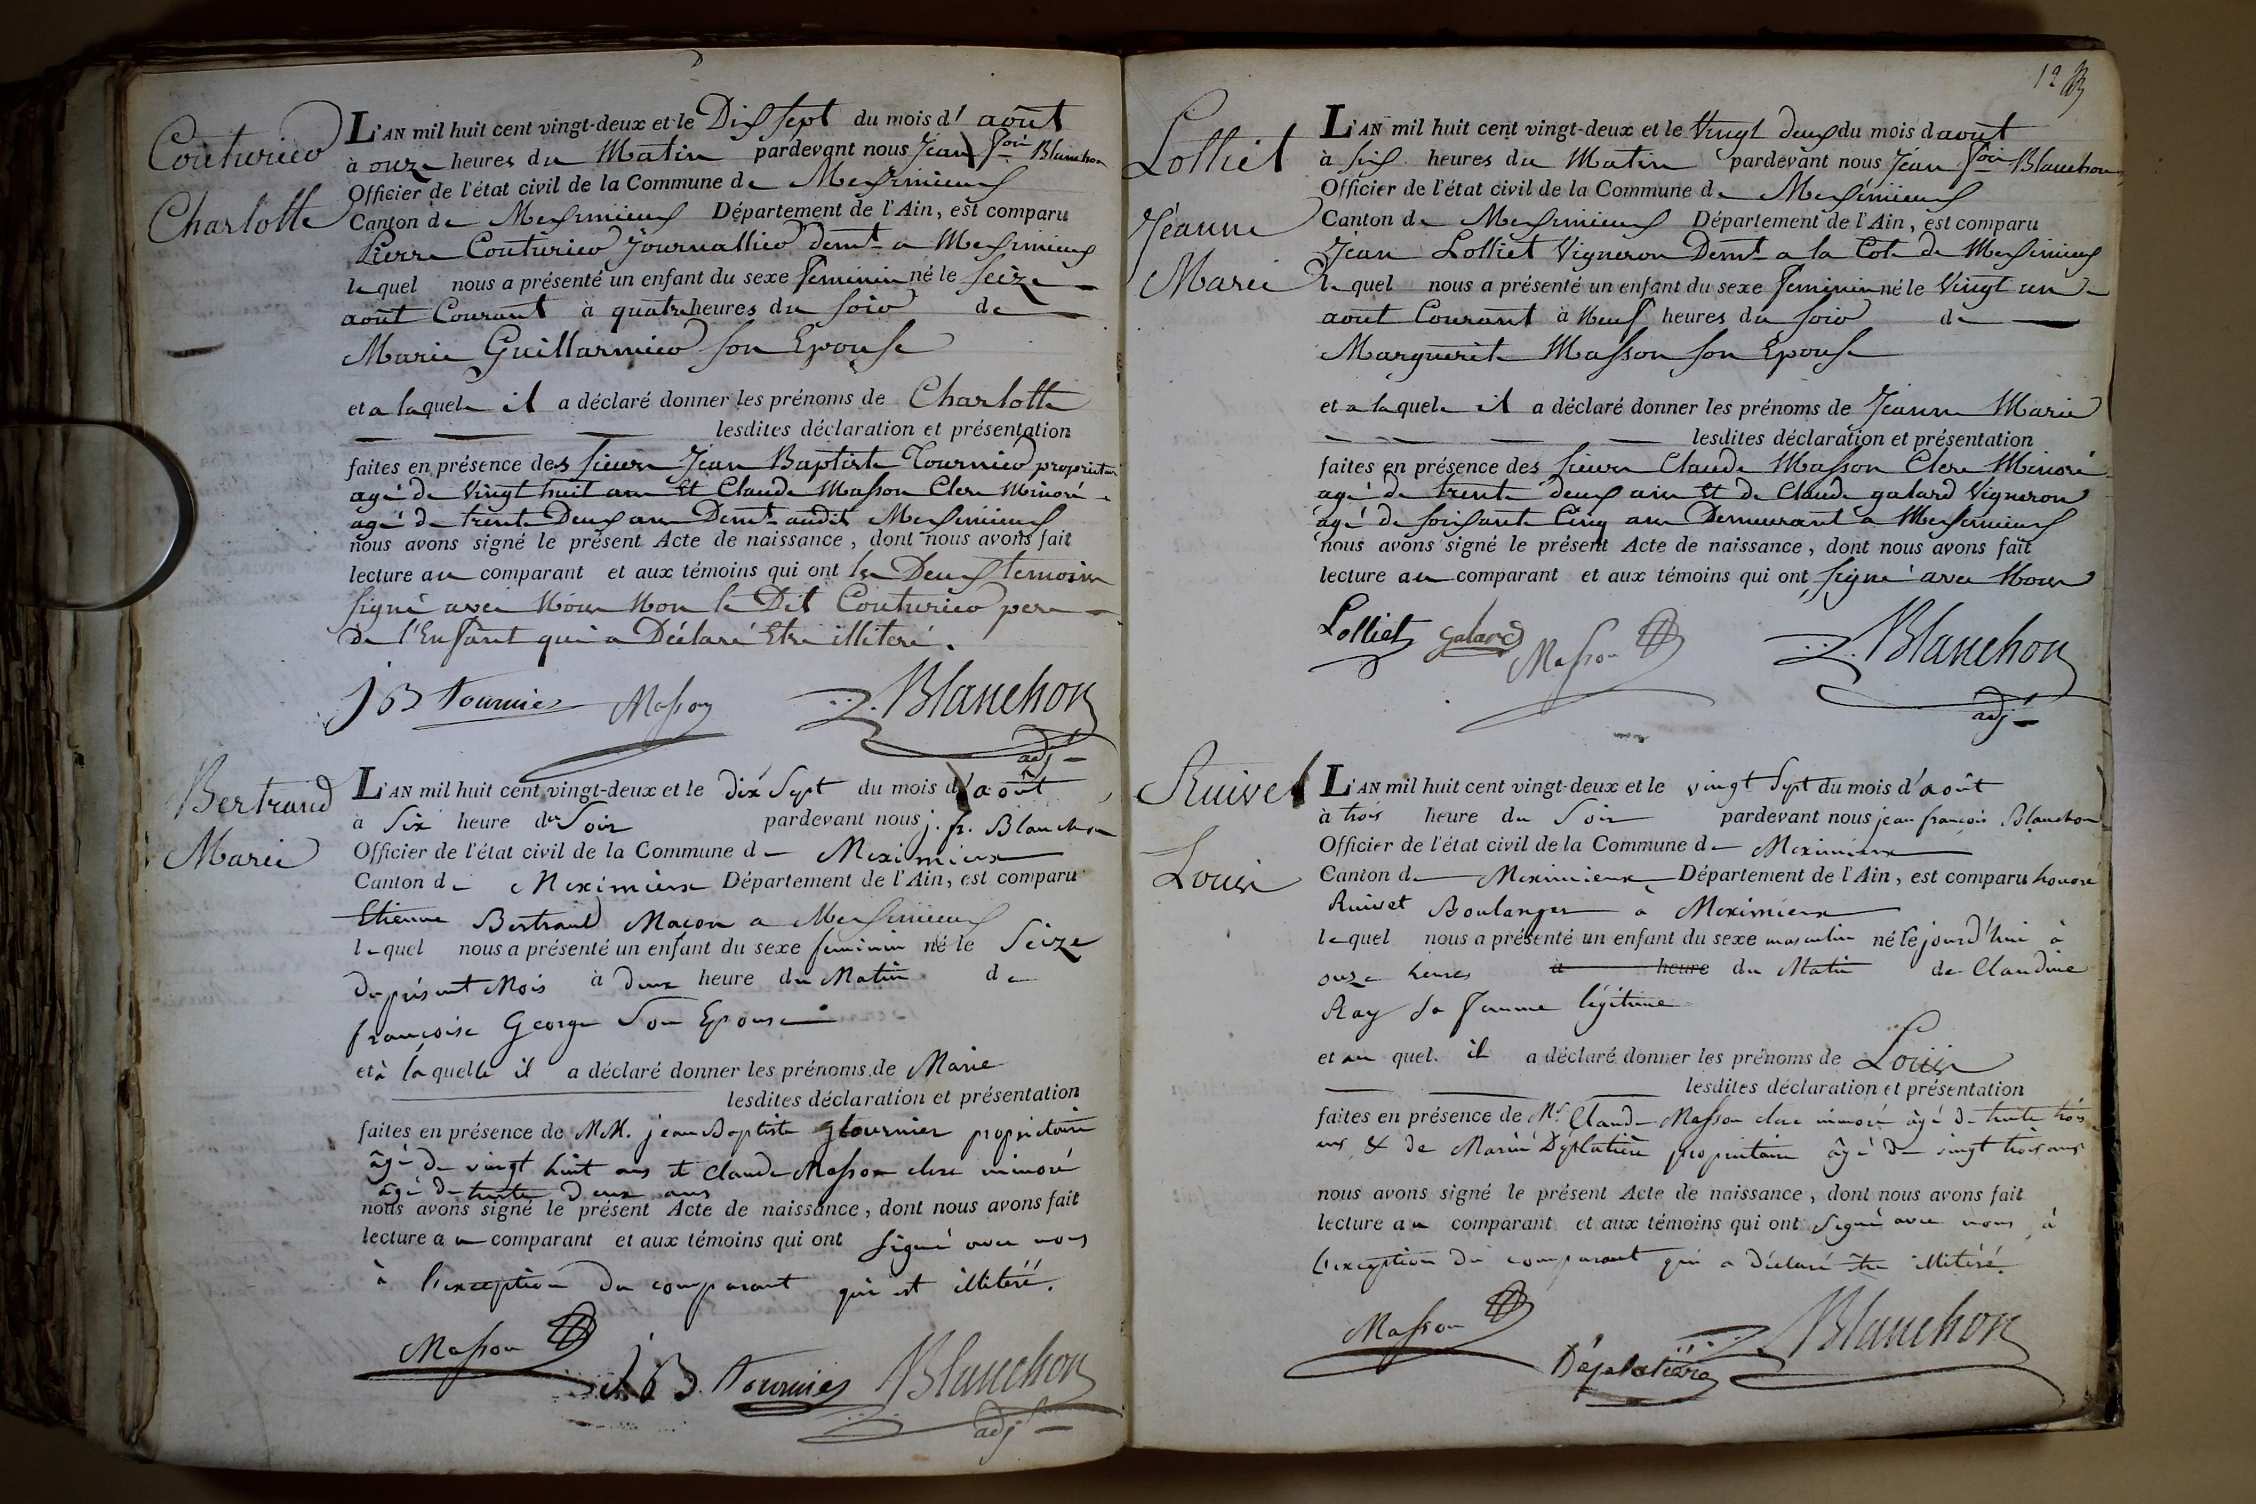 Couturier
Charlotte
L'AN mil huit cent vingt-deux et le Dix sept du mois d'aout
à onze heures du Matin pardevant nous Jean Fois Blanchon
Officier de l'état civil de la Commune de Meximieux
Canton de Meximieux Département de l'Ain, est comparu
Pierre Couturier Journallier demt a Meximieux
lequel nous a présenté un enfant du sexe feminin né le seize
aout Courant à quatre heures du soir de
Marie Guillarmier son Epouse
et a laquele il a déclaré donner les prénoms de Charlotte
lesdites déclaration et présentation
faites en présence des sieurs Jean Baptiste Tournier proprietaire
agé de vingt huit ans Et Claude Masson Clerc Minoré
agé de trente Deux ans Demt audit Meximieux
nous avons signé le présent Acte de naissance, dont nous avons fait
lecture au comparant et aux témoins qui ont les Deux temoins
signé avec Nous Non le Dit Couturier pere
de l'Enfant qui a Déclaré Etre illiteré.
JB Tournier Masson Blanchon
adj
Bertrand
Marie
L'AN mil huit cent vingt-deux et le dix Sept du mois d'août
à Six heure du Soir pardevant nous j. fr. Blanchon
Officier de l'état civil de la Commune de Meximieux
Canton de Meximieux Département de l'Ain, est comparu
Etienne Bertrand Maçon a Meximieux
lequel nous a présenté un enfant du sexe feminin né le Seize
du présent Mois à deux heure du Matin de
françoise George Son Epouse
et à laquelle il a déclaré donner les prénoms de Marie
lesdites déclaration et présentation
faites en présence de MM. jean Baptiste tournier propriétaire
âgé de vingt huit ans et Claude Masson clerc minoré
âgé de trente Deux ans
nous avons signé le présent Acte de naissance, dont nous avons fait
lecture au comparant et aux témoins qui ont signé avec nous
à l'exception du comparant qui est illitéré.
Masson JB Tournier Blanchon
adj
12
Lolliet
Jeanne
Marie
L'AN mil huit cent vingt-deux et le Vingt deux du mois d aout
à six heures du Matin pardevant nous Jean Fois Blanchon
Officier de l'état civil de la Commune de Meximieux
Canton de Meximieux Département de l'Ain, est comparu
Jean Lolliet Vigneron Demt a la Cote de Meximieux
lequel nous a présenté un enfant du sexe feminin né le Vingt un
aout Courant à Neuf heures du soir de
Marguerite Masson son Epouse
et a laquele il a déclaré donner les prénoms de Jeanne Marie
lesdites déclaration et présentation
faites en présence des sieurs Claude Masson Clerc Minoré
agé de trente deux ans Et de Claude galard Vigneron
agé de soixante Cinq ans Demeurant a Meximieux
nous avons signé le présent Acte de naissance, dont nous avons fait
lecture au comparant et aux témoins qui ont signé avec Nous
Lolliet galard Masson Blanchon
adj
Ruivet
Louis
L'AN mil huit cent vingt-deux et le vingt Sept du mois d'août
à trois heure du Soir pardevant nous jean françois Blanchon
Officier de l'état civil de la Commune de Meximieux
Canton de Meximieux Département de l'Ain, est comparu honoré
Ruivet Boulanger à Meximieux
lequel nous a présenté un enfant du sexe masculin né le jourd'hui à
onze heures à heure du Matin de Claudine
Ray sa femme légitime
et au quel il a déclaré donner les prénoms de Louis
lesdites déclaration et présentation
faites en présence de Mr. Claude Masson clerc minoré âgé de trente trois
ans & de Marin Déplatière propriétaire âgé de vingt trois ans
nous avons signé le présent Acte de naissance, dont nous avons fait
lecture au comparant et aux témoins qui ont Signé avec nous à
l'exception du comparant qui a déclaré être illitéré.
Masson Déplatière Blanchon